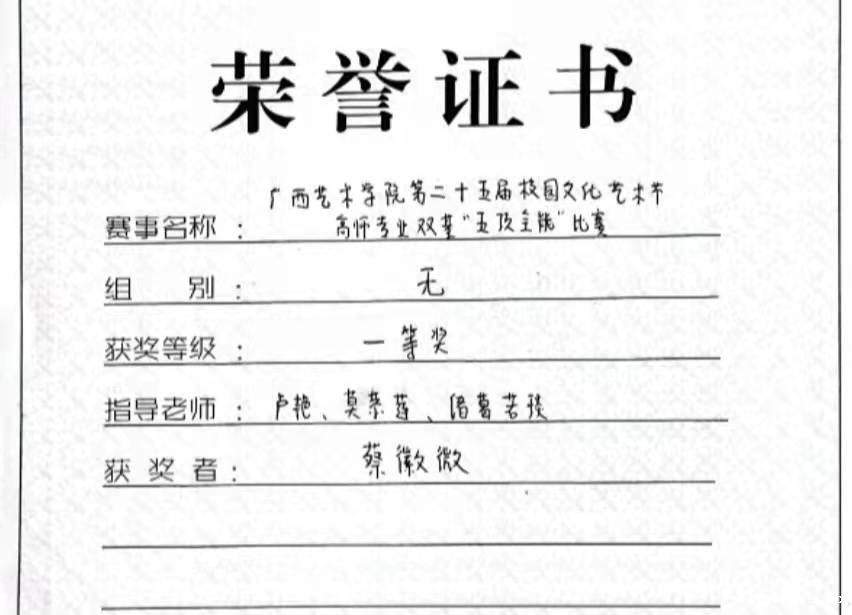 荣誉证书
广西艺术学院第二十五届校园文化艺术节
赛事名称：高师专业双基"五项全能"比赛
组 别：无
获奖等级：一等奖
指导老师：卢艳、莫 莲、诸葛若
获奖者：蔡徽微